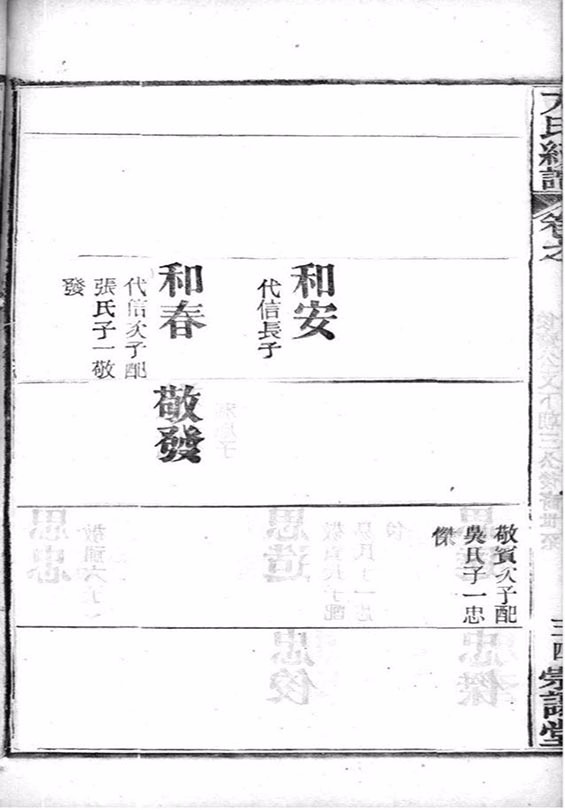 方氏續譜 卷之
三四
崇譜堂
敬賓次子配
吳氏子一忠
傑
和安
代信長子
和春
代信次子配
張氏子一敬
發
敬發